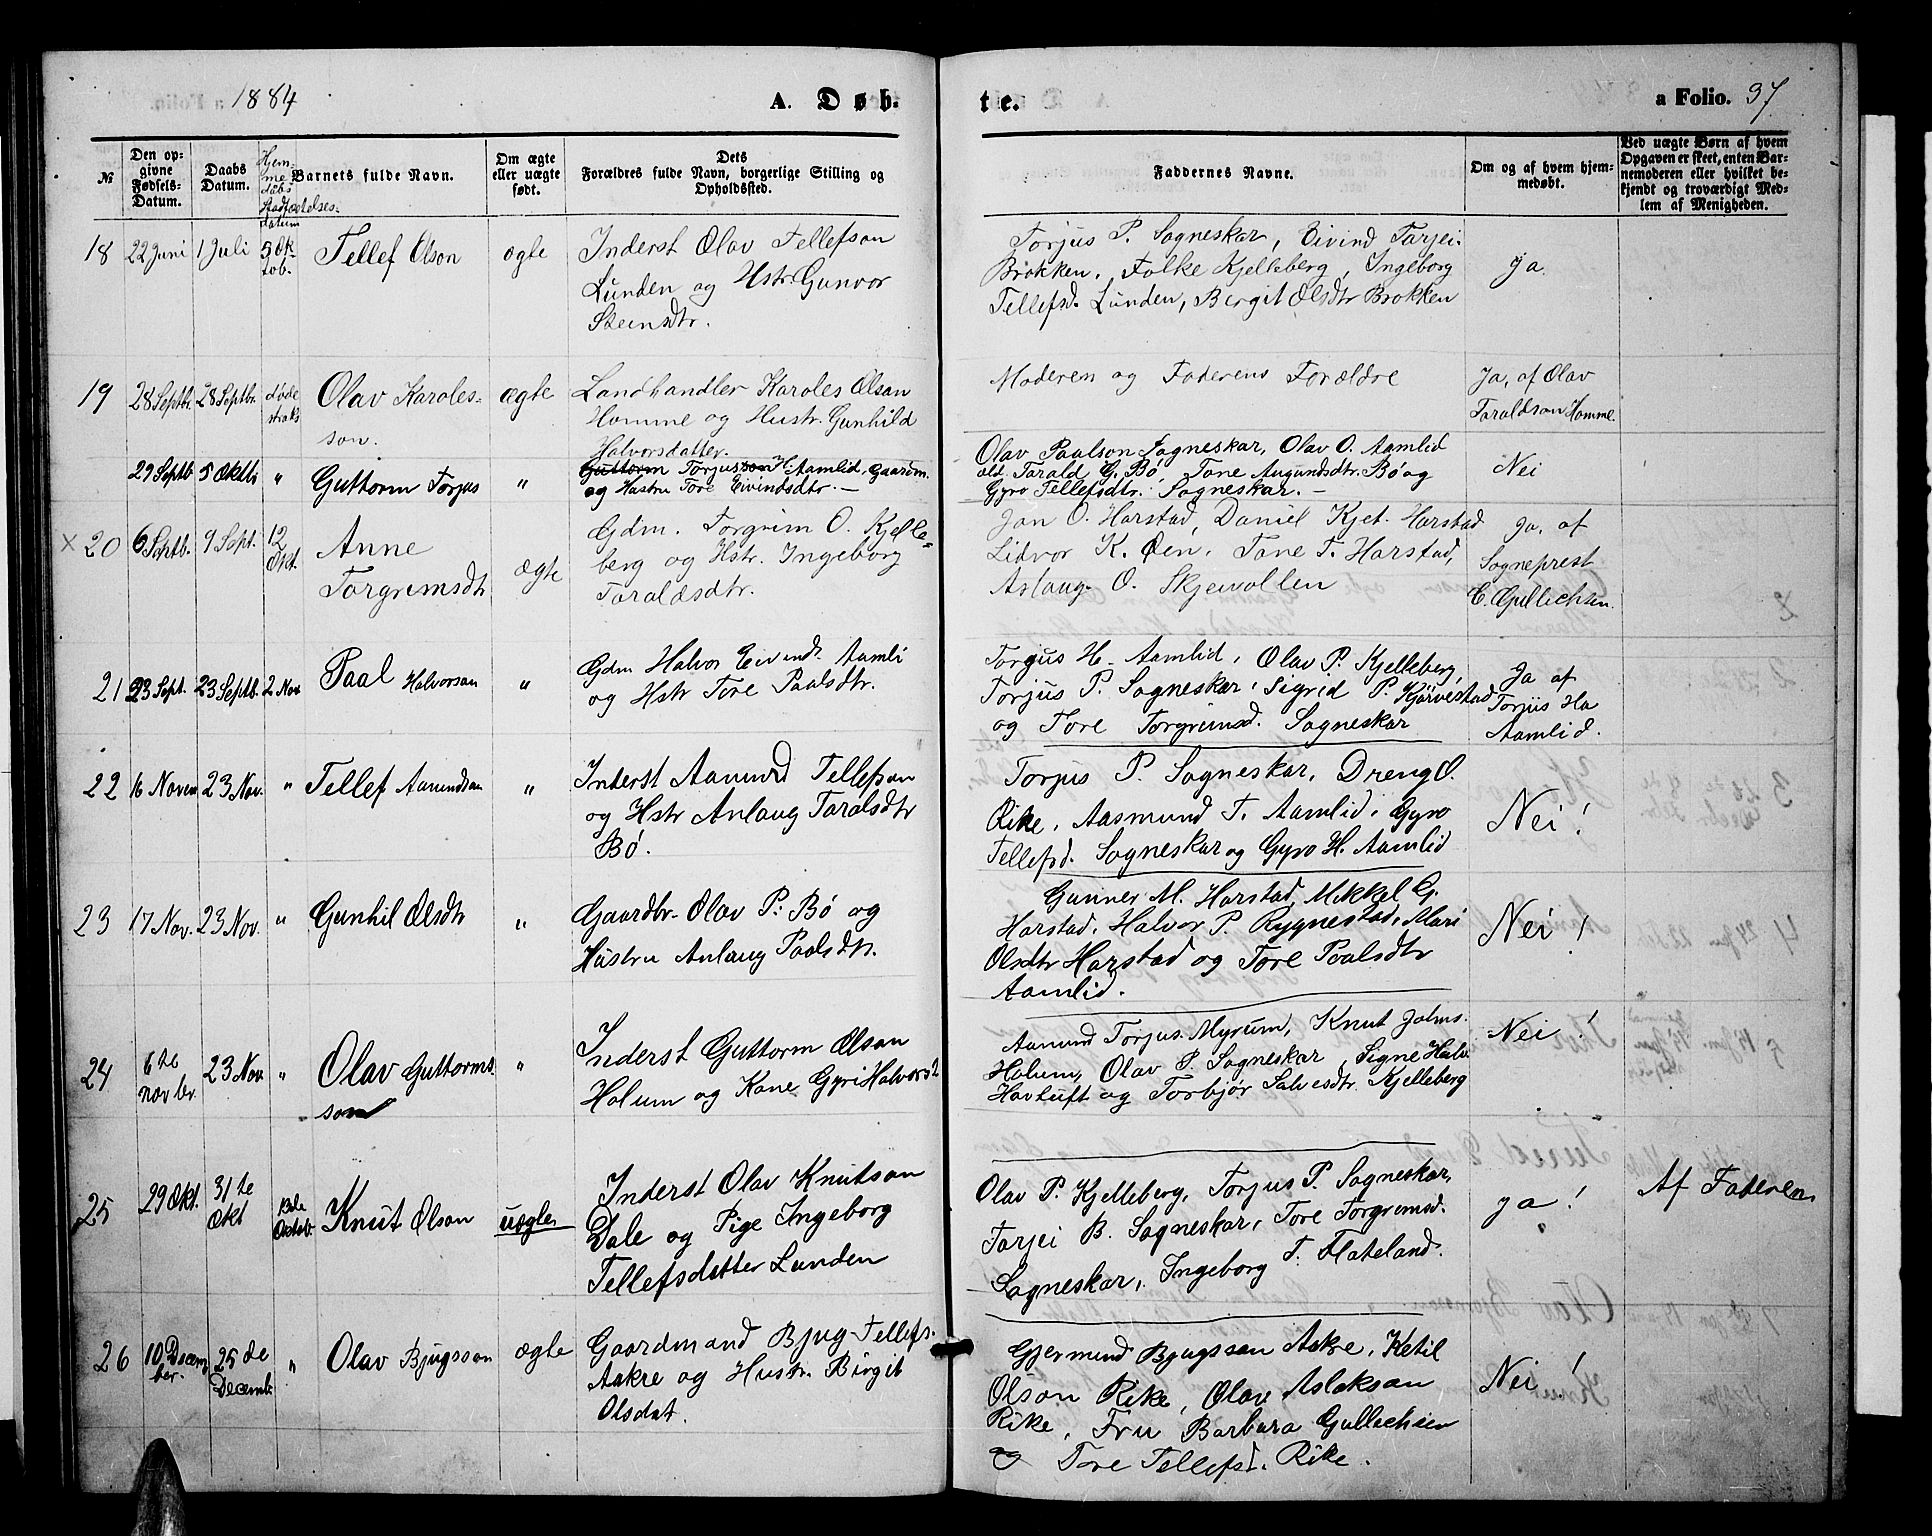 1884
A. Døb-
te.
a Folio. 37.
№
Den op-
givne
Fødsels-
Datum.
Daabs
Datum.
Hjem-
me
daabs
Stadfæstelses-
datum
Barnets fulde Navn.
Om ægte
eller uægte
født.
Dets
Forældres fulde Navn, borgerlige Stilling og
Opholdssted.
Faddernes Navne.
Om og af hvem hjem-
medøbt.
Ved uægte Børn af hvem
Opgaven er skeet, enten Bar-
nemoderen eller hvilket be-
kjendt og troværdigt Med-
lem af Menigheden.
18 22 Juni 1 Juli 5 Ok-
tob. Tellef Olson ægte
Inderst Olav Tellefson
Lunden og Hstr. Gunvor
Steinsdtr.
Torjus P. Sagneskar, Eivind Tarjei.
Brokken, Folke Kjelleberg, Ingeborg
Tellefsd. Lunden, Bergit Olsdtr Brokken
Ja.
19 28 Septbr 28 Septbr. døde
straks
Olav Karoles-
son. ægte
Landhandler Karoles Olson
Homme og Hustr. Gunhild
Halvorsdatter.
Moderen og Faderens Forældre
Ja, af Olav
Taraldson Homme.
29 Septb 5 Oktb " Guttorm Torjus "
Guttorm Torjusson H. Aamlid, Gaardm.
og Hustru Tore Eivindsdtr. —
Olav Paalson Sagneskar, Olav O. Aamlid
Tarald G. Bø, Tone Augundsdtr. Bø og
Gyro Tellefsdtr. Sagneskar. —
Nei
x 20 6 Septb. 9 Sept. 12
Okt.
Anne
Torgrimsdtr ægte
Gdm. Torgrim O. Kjelle-
berg og Hstr. Ingeborg
Taraldsdtr.
Jon O. Harstad, Daniel Kjet. Harstad
Lidvor K. Øen, Tone T. Harstad,
Aslaug O. Skjevollen
Ja, af
Sogneprest
C. Gullichsen.
21 23 Sept. 23 Septb. 2 Nov Paal Halvorson "
Gdm Halvor Eivinds. Aamli
og Hstr Tore Paalsdtr.
Torjus H. Aamlid, Olav P. Kjelleberg,
Torjus P. Sagneskar, Sigrid P. Kjørvestad
og Tore Torgrimsd. Sagneskar
Ja af
Torjus Ha
Aamlid.
22 16 Novem 23 Nov. " Tellef Aamundson "
Inderst Aamund Tellefson
og Hstr Anlaug Taralsdtr
Bø.
Torjus P. Sagneskar, Dreng O.
Rike, Aasmund T. Aamlid, Gyro
Tellefsd. Sagneskar og Gyro H. Aamlid
Nei!
23 17 Nov. 23 Nov. " Gunhil Olsdtr "
Gaardbr. Olav P. Bø og
Hustru Anlaug Paalsdtr.
Gunner M. Harstad, Mikkel G.
Harstad, Halvor P. Rygnestad, Mari
Olsdtr Harstad og Tore Paalsdtr
Aamlid.
Nei!
24 6te
novbr. 23 Nov " Olav Guttorms-
son "
Inderst Guttorm Olson
Holum og Kone Gyri Halvorsd
Aamund Torjus. Myrum, Knut Johns.
Holum, Olav P. Sagneskar, Signe Halv.
Havtuft og Torbjør Salvesdtr. Kjelleberg
Nei!
25 29 Okt. 31te
Okt Knut Olson uægte
Inderst Olav Knutson
Dale og Pige Ingeborg
Tellefsdatter Lunden
Olav P. Kjelleberg, Torjus P. Sagneskar,
Tarjei B. Sagneskar, Tore Torgrimsd.
Sagneskar, Ingeborg T. Flateland.
ja!
Af Faderen
26 10 Decem
ber. 25de
Decemb. " Olav Bjugsson ægte
Gaardmand Bjug Tellefs.
Aakre og Hustr. Birgit
Olsdat.
Gjermund Bjugsson Aakre, Ketil
Olson Rike, Olav Aslakson
Rike, Fru Barbara Gullichsen
og Tore Tellefsd. Rike.
Nei!